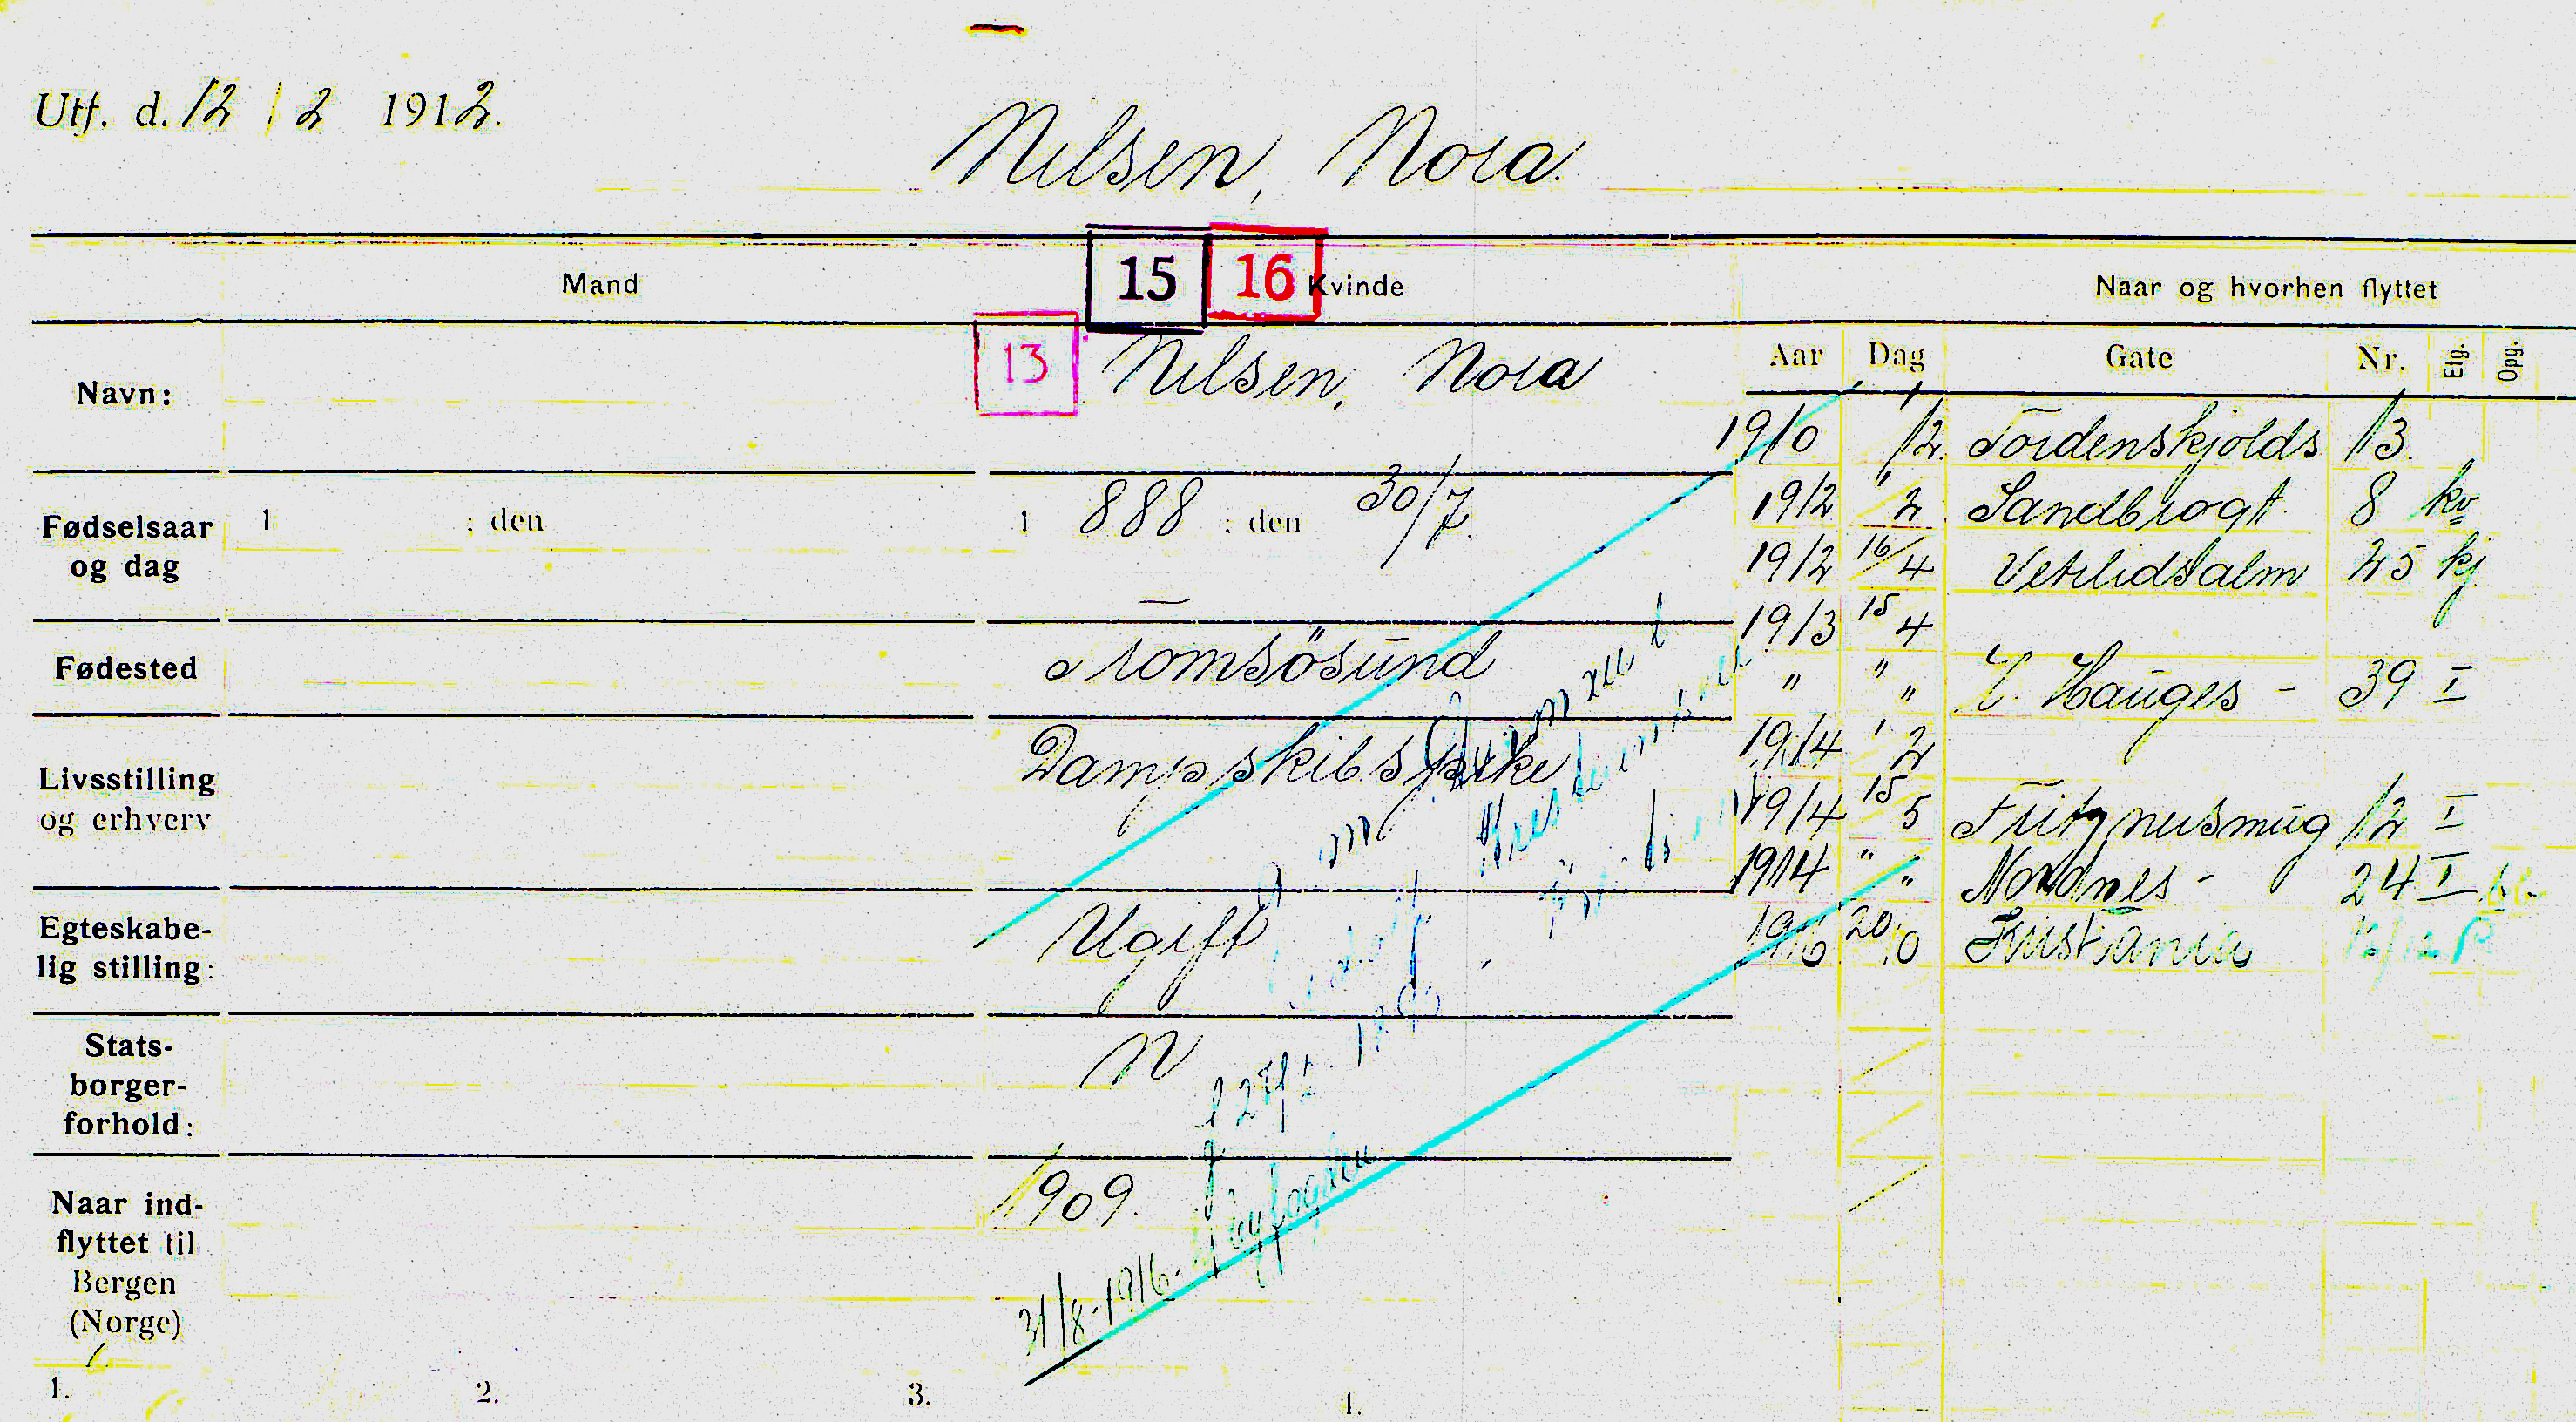 Utf. d. 12 / 2 1912.
Nilsen, Nora.
Mand
15
16
Kvinde
Naar og hvorhen flyttet
Navn:
13
Nilsen, Nora
Aar Dag Gate Nr. Etg. Opg.
1910 1/12 Tordenskjolds 13.
Fødselsaar og dag
1 : den
1 888 : den 30/7.
1912 1/2 Sandbrogt. 8 kv
1912 16/4 Vetrlidsalm 25 kj
1913 15/4
Fødested
Tromsösund
" " " Hauges - 39 I
1914 1/2
Livsstilling og erhverv
Dampskibspike
1914 15/5 12 I
1914 " " Nordnes - 24 I
Egteskabe-
lig stilling:
Ugift
1916 20/10 Kristiania
Stats-
borger-
forhold:
N
f 1890
Naar ind-
flyttet til
Bergen
(Norge)
1909.
31/8-1916. Byfogden
1. 2. 3. 4.